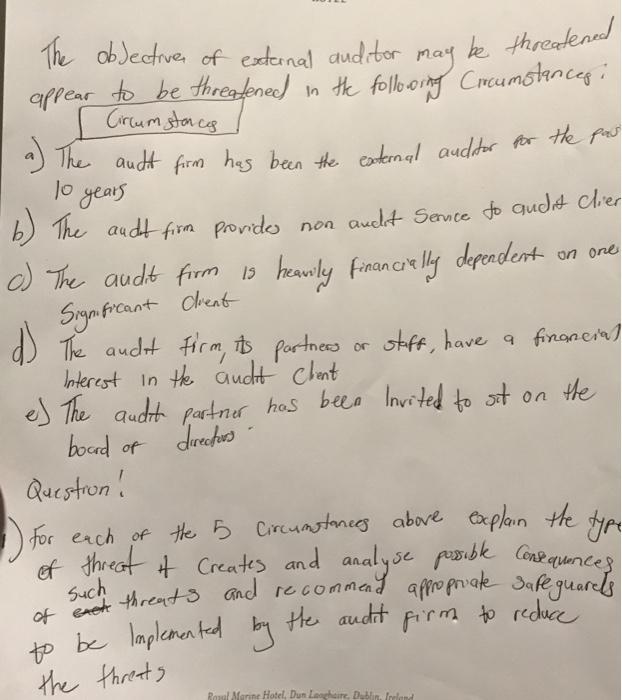 The objective of external auditor may be threatened
appear to be threatened in the following Circumstances:
Circumstances
a) The audit firm has been the external auditor for the pas
10 years
b) The audit firm provides non audit Service to audit Clien
c) The audit firm is heavily financially dependent on one
Significant Client
d) The audit firm, its partners or staff, have a financial
Interest in the audit Client
e) The audit partner has been Invited to sit on the
board of directors.
Question!
) For each of the 5 Circumstances above explain the type
of threat it Creates and analyse possible Consequences
of such threats and recommend appropriate safeguards
to be Implemented by the audit firm to reduce
the threats
Royal Marine Hotel, Dun Laoghaire, Dublin, Ireland